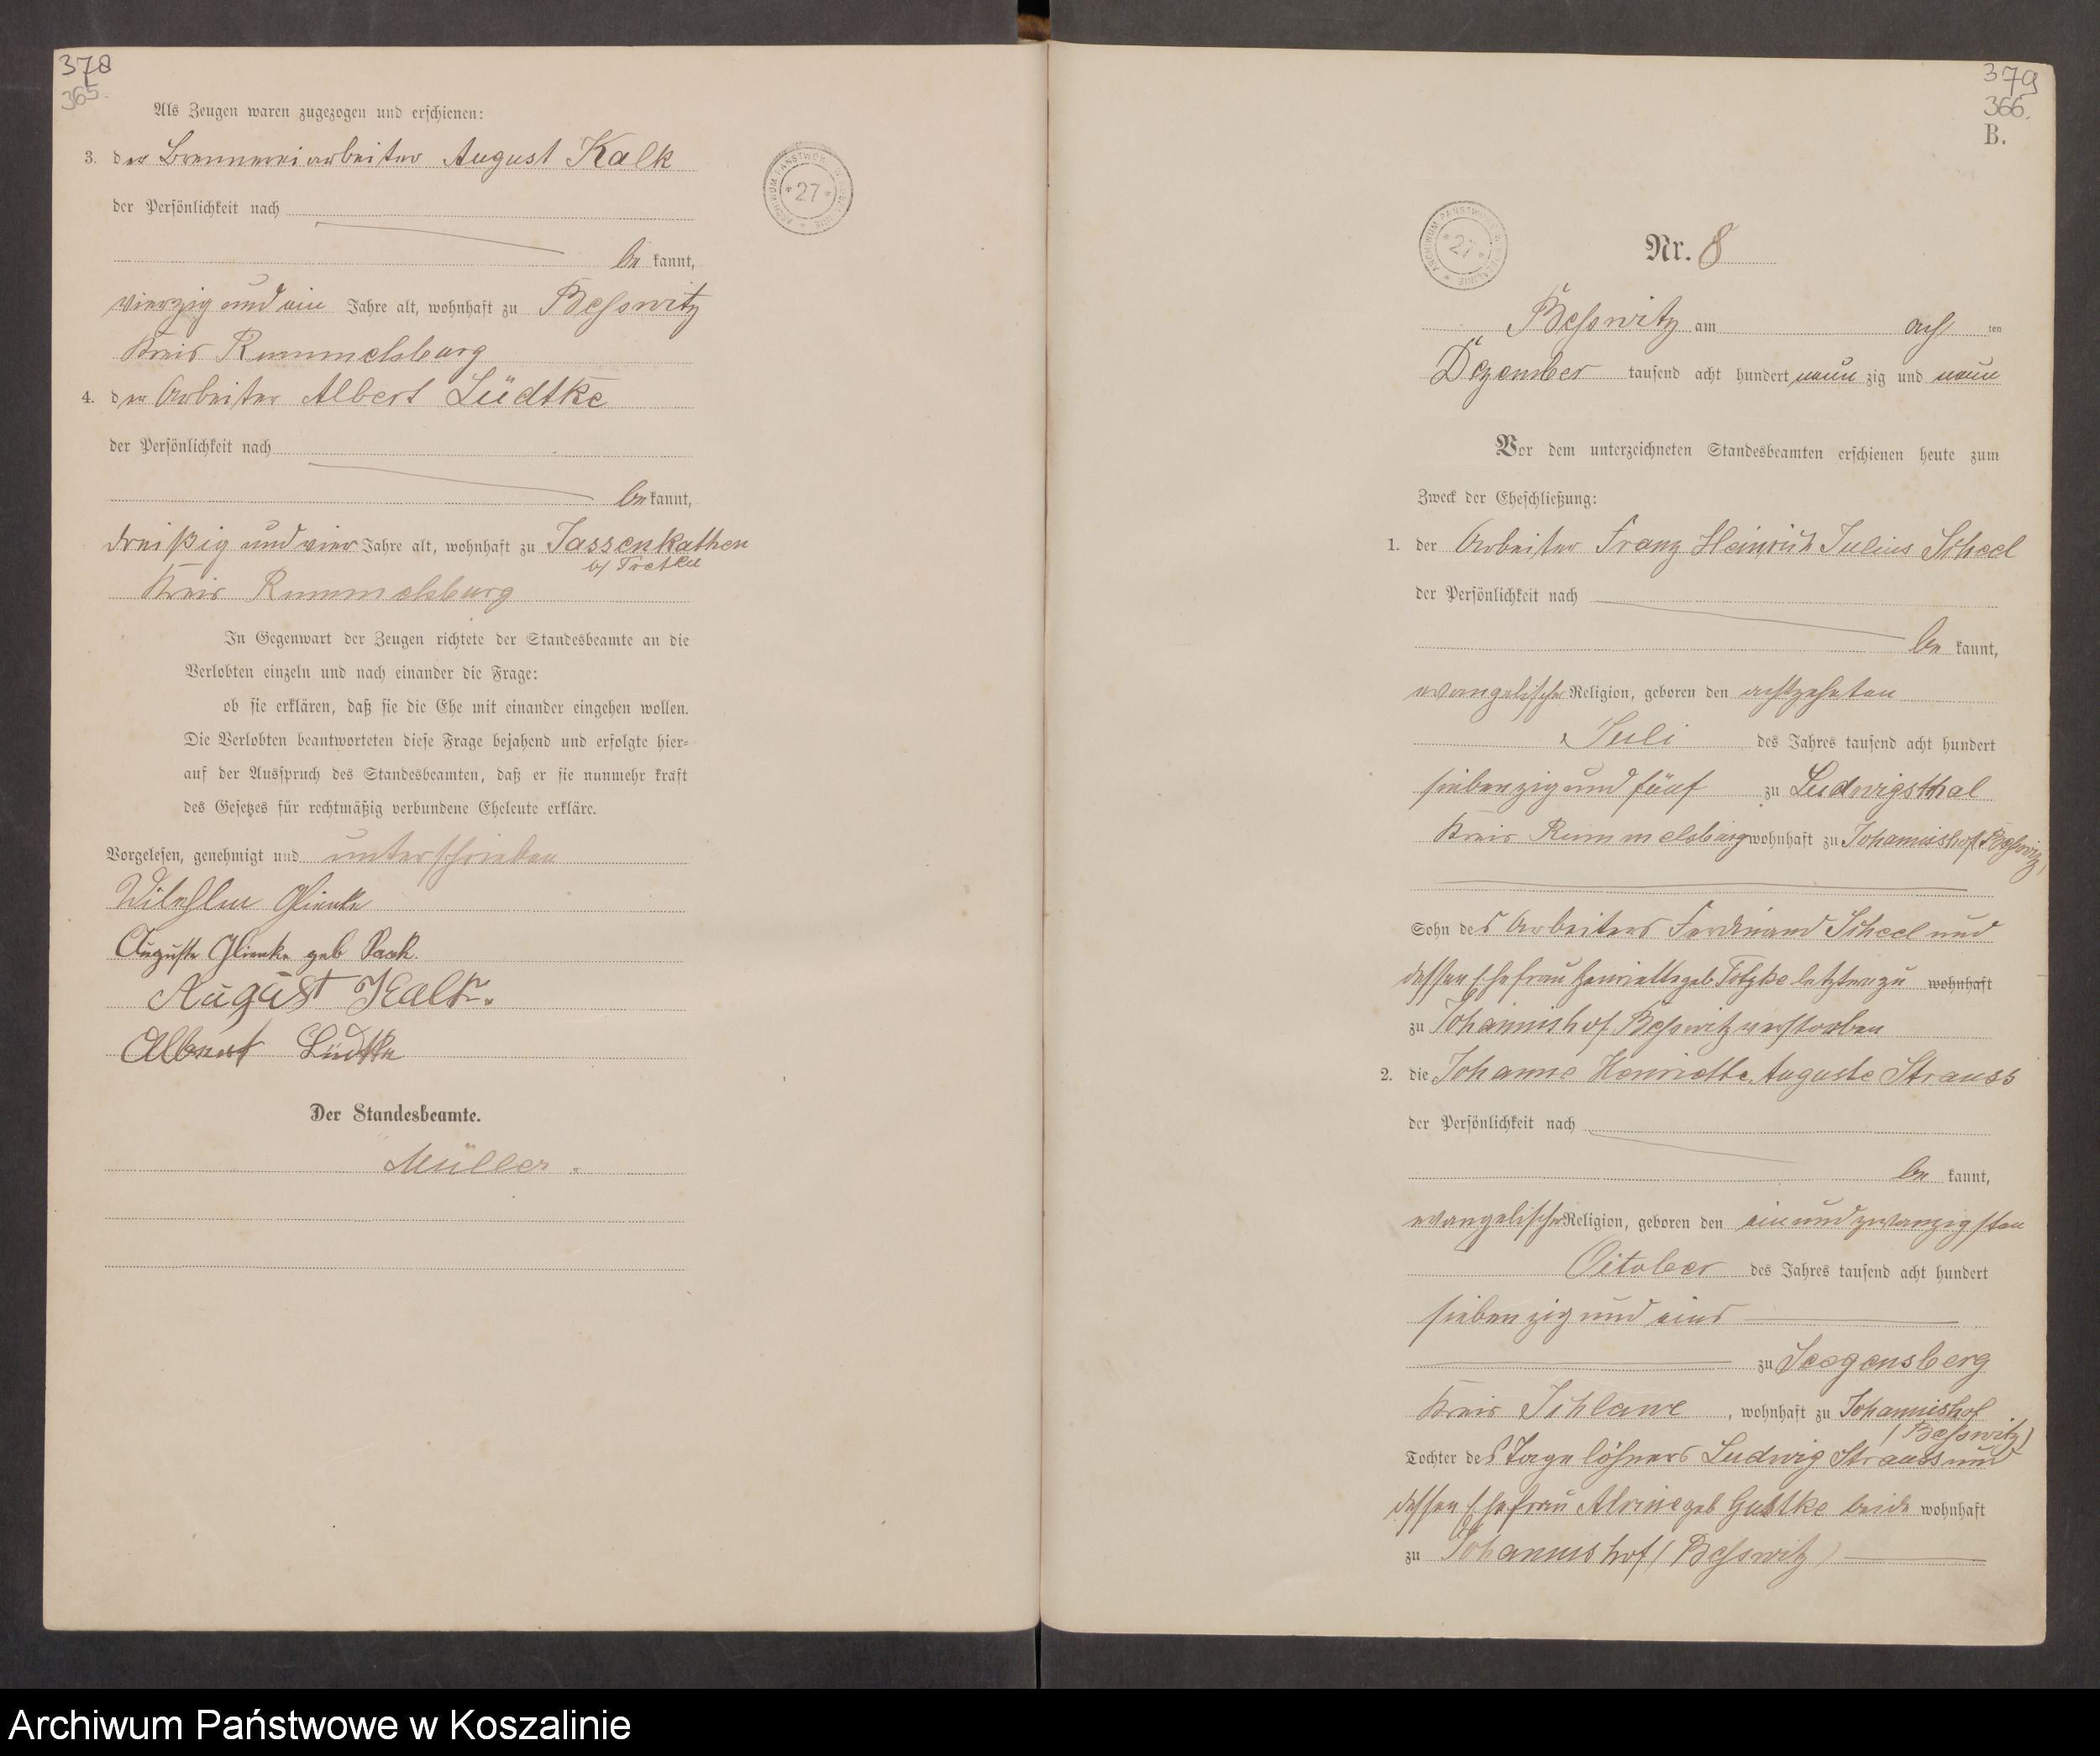 378
365.
Als Zeugen waren zugezogen und erschienen:
3. der Brennereiarbeiter August Kalk
der Persönlichkeit nach
be kannt,
vierzig und ein Jahre alt, wohnhaft zu Besswitz
Kreis Rummelsburg
4. der Arbeiter Albert Lüdtke
der Persönlichkeit nach
be kannt,
dreißig und vier Jahre alt, wohnhaft zu Jassenkathen
Kreis Rummelsburg
In Gegenwart der Zeugen richtete der Standesbeamte an die
Verlobten einzeln und nach einander die Frage:
ob sie erklären, daß sie die Ehe mit einander eingehen wollen.
Die Verlobten beantworteten diese Frage bejahend und erfolgte hier-
auf der Ausspruch des Standesbeamten, daß er sie nunmehr kraft
des Gesetzes für rechtmäßig verbundene Eheleute erkläre.
Vorgelesen, genehmigt und unterschrieben
Wilhelm Glienke
Auguste Glienke geb
August Kalk.
Albert Lüdtke
Der Standesbeamte.
Müller.
ARCHIWUM PAŃSTWOWE W KOSZALINIE
* 27 *
379
366.
B.
ARCHIWUM PAŃSTWOWE W KOSZALINIE
* 27 *
Nr. 8
Besswitz am acht ten
Dezember tausend acht hundert neun zig und neun
Vor dem unterzeichneten Standesbeamten erschienen heute zum
Zweck der Eheschließung:
1. der Arbeiter Franz Heinrich Julius Scheel
der Persönlichkeit nach
be kannt,
evangelischer Religion, geboren den achtzehnten
Juli des Jahres tausend acht hundert
siebenzig und fünf zu Ludwigsthal
Kreis Rummelsburg wohnhaft zu Johannishof (Besswitz)
Sohn des Arbeiters Ferdinand Scheel und
dessen Ehefrau Henriette geb Totzke letztere zu wohnhaft
zu Johannishof Besswitz verstorben
2. die Johanne Henriette Auguste Strauss
der Persönlichkeit nach
be kannt,
evangelischer Religion, geboren den ein und zwanzigsten
October des Jahres tausend acht hundert
siebenzig und eins
zu Seegensberg
Kreis Schlawe, wohnhaft zu Johannishof
(Besswitz)
Tochter des Tagelöhners Ludwig Strauss und
dessen Ehefrau Alvine geb Gustke beide wohnhaft
zu Johannishof (Besswitz)
Archiwum Państwowe w Koszalinie